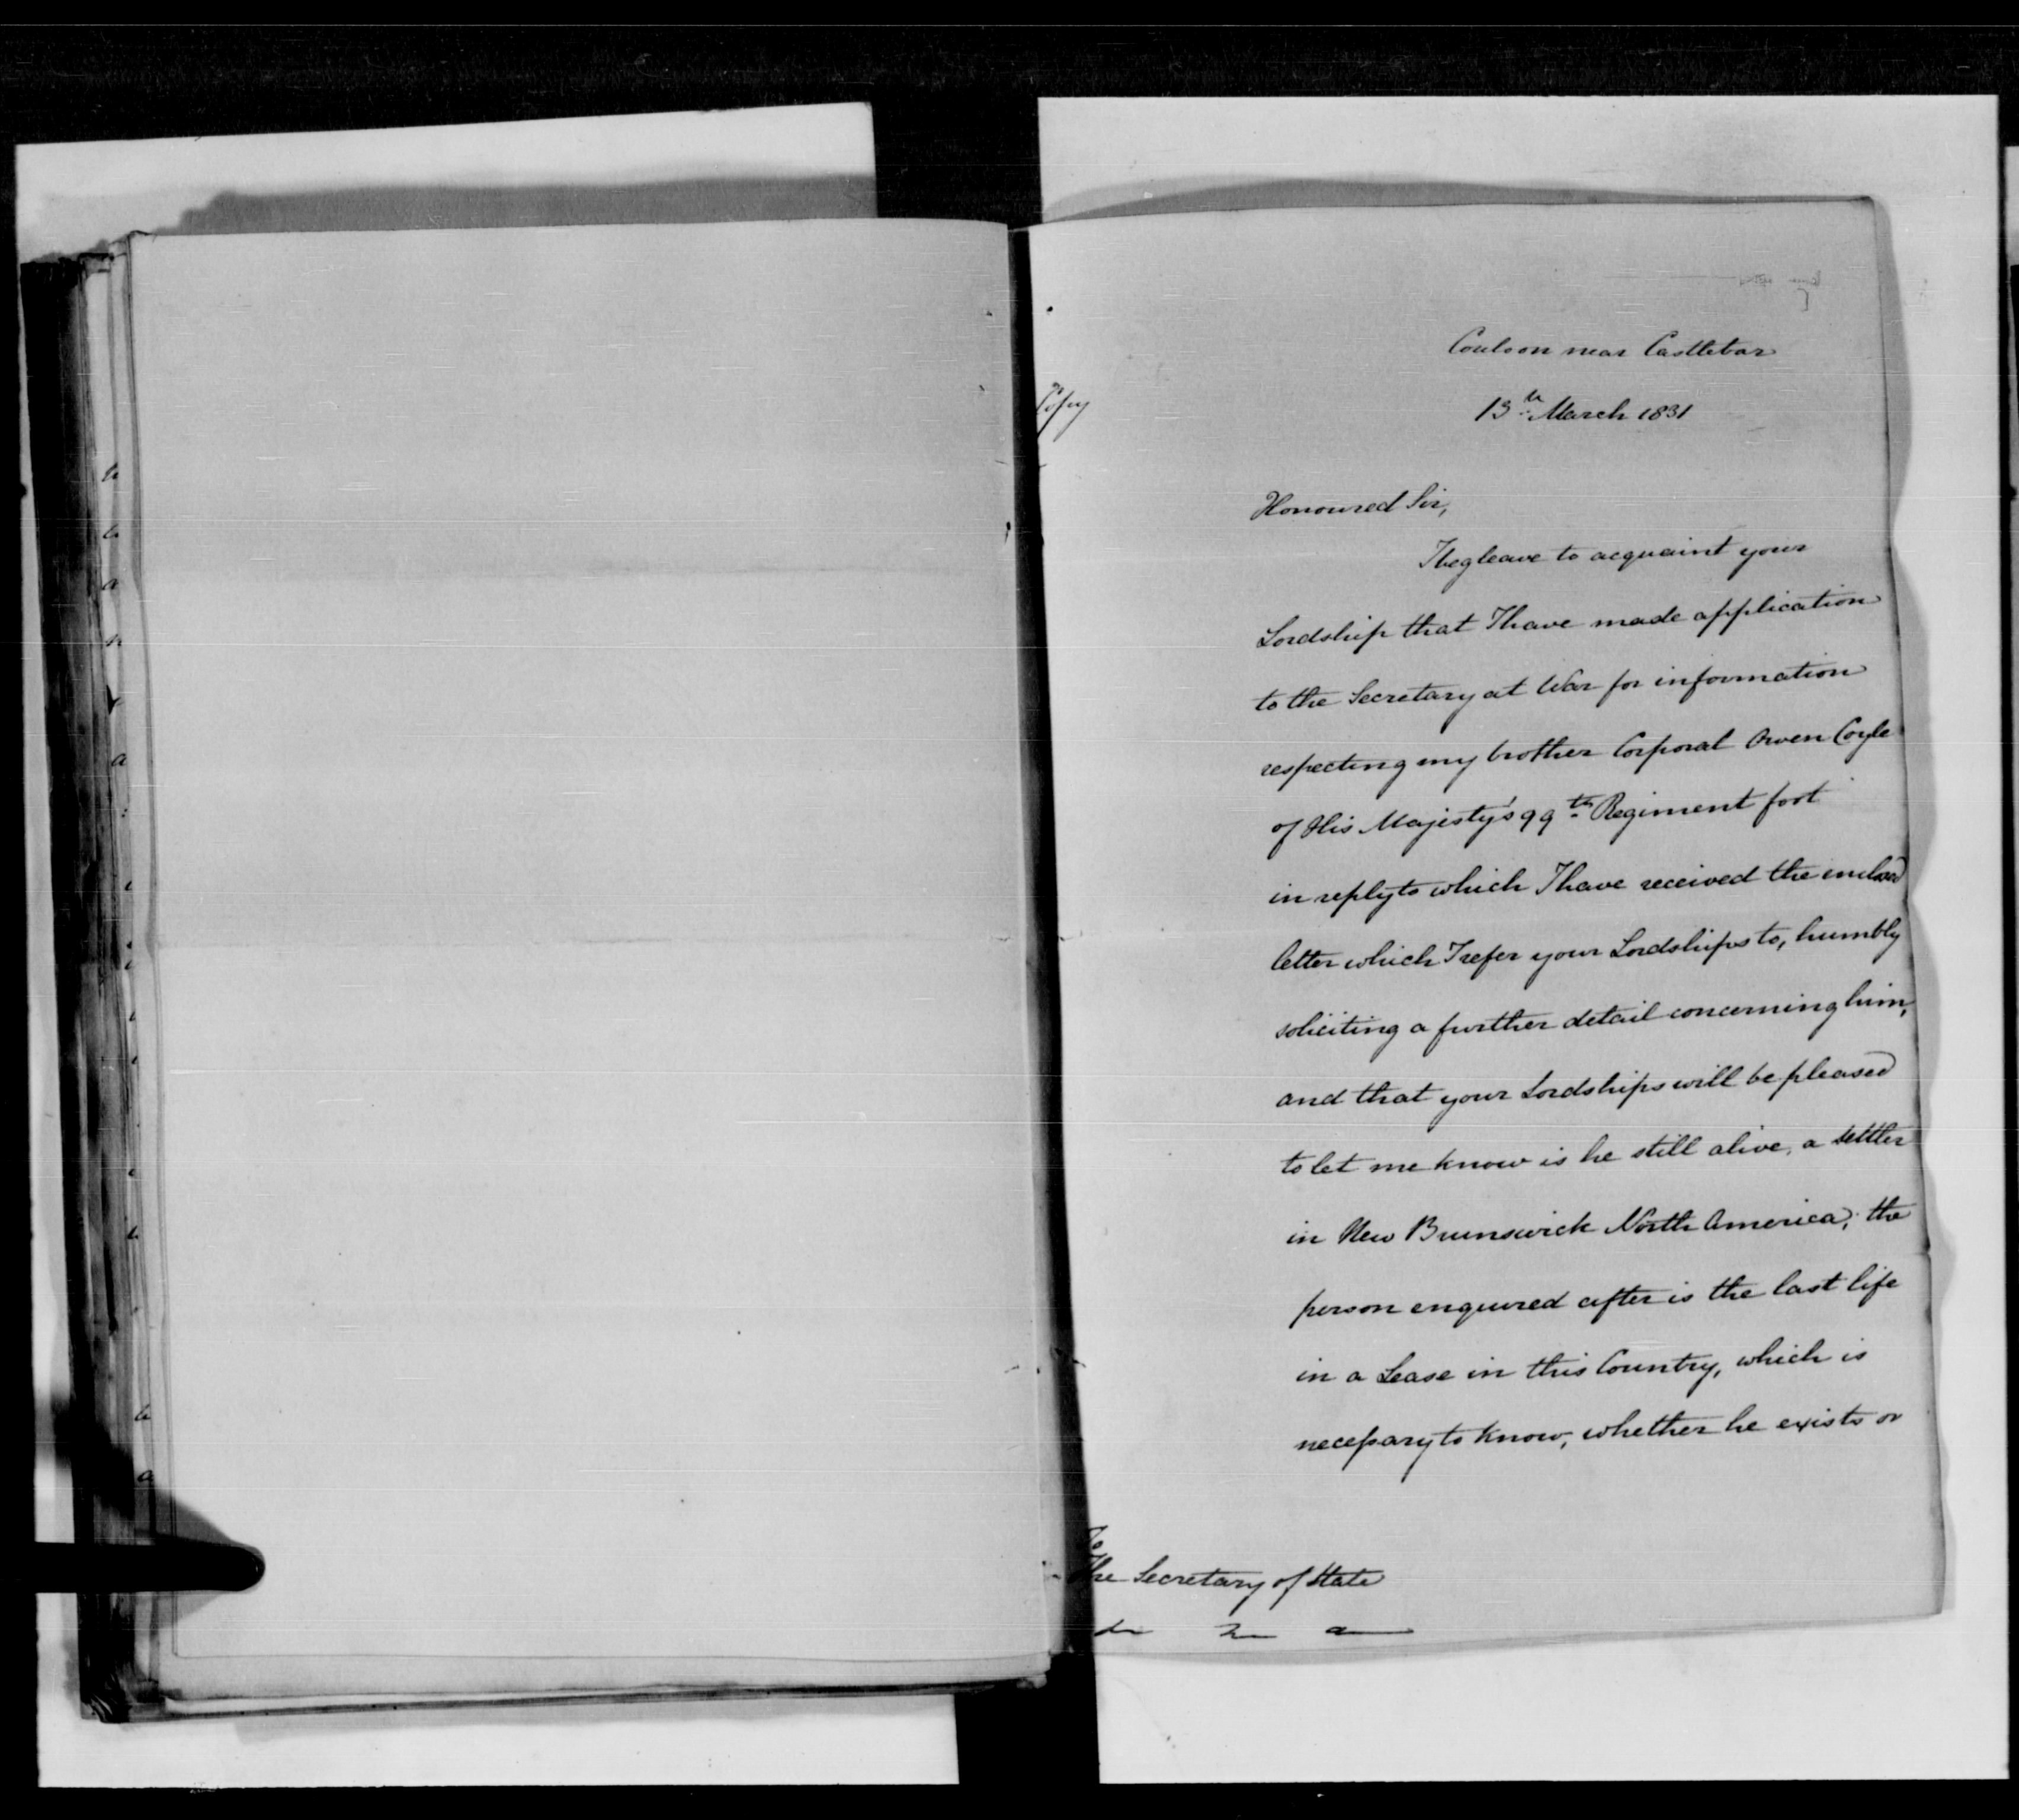 Copy
Couloon near Castlebar
13th March 1831
Honoured Sir,
I beg leave to acquaint your
Lordship that I have made application
to the Secretary at War for information
respecting my brother Corporal Owen Coyle
of His Majesty's 99th Regiment foot
in reply to which I have received the enclosed
letter which I refer your Lordships to, humbly
soliciting a further detail concerning him,
and that your Lordships will be pleased
to let me know is he still alive, a settler
in New Brunswick North America; the
person enquired after is the last life
in a Lease in this Country, which is
necessary to know, whether he exists or
To
The Secretary of State